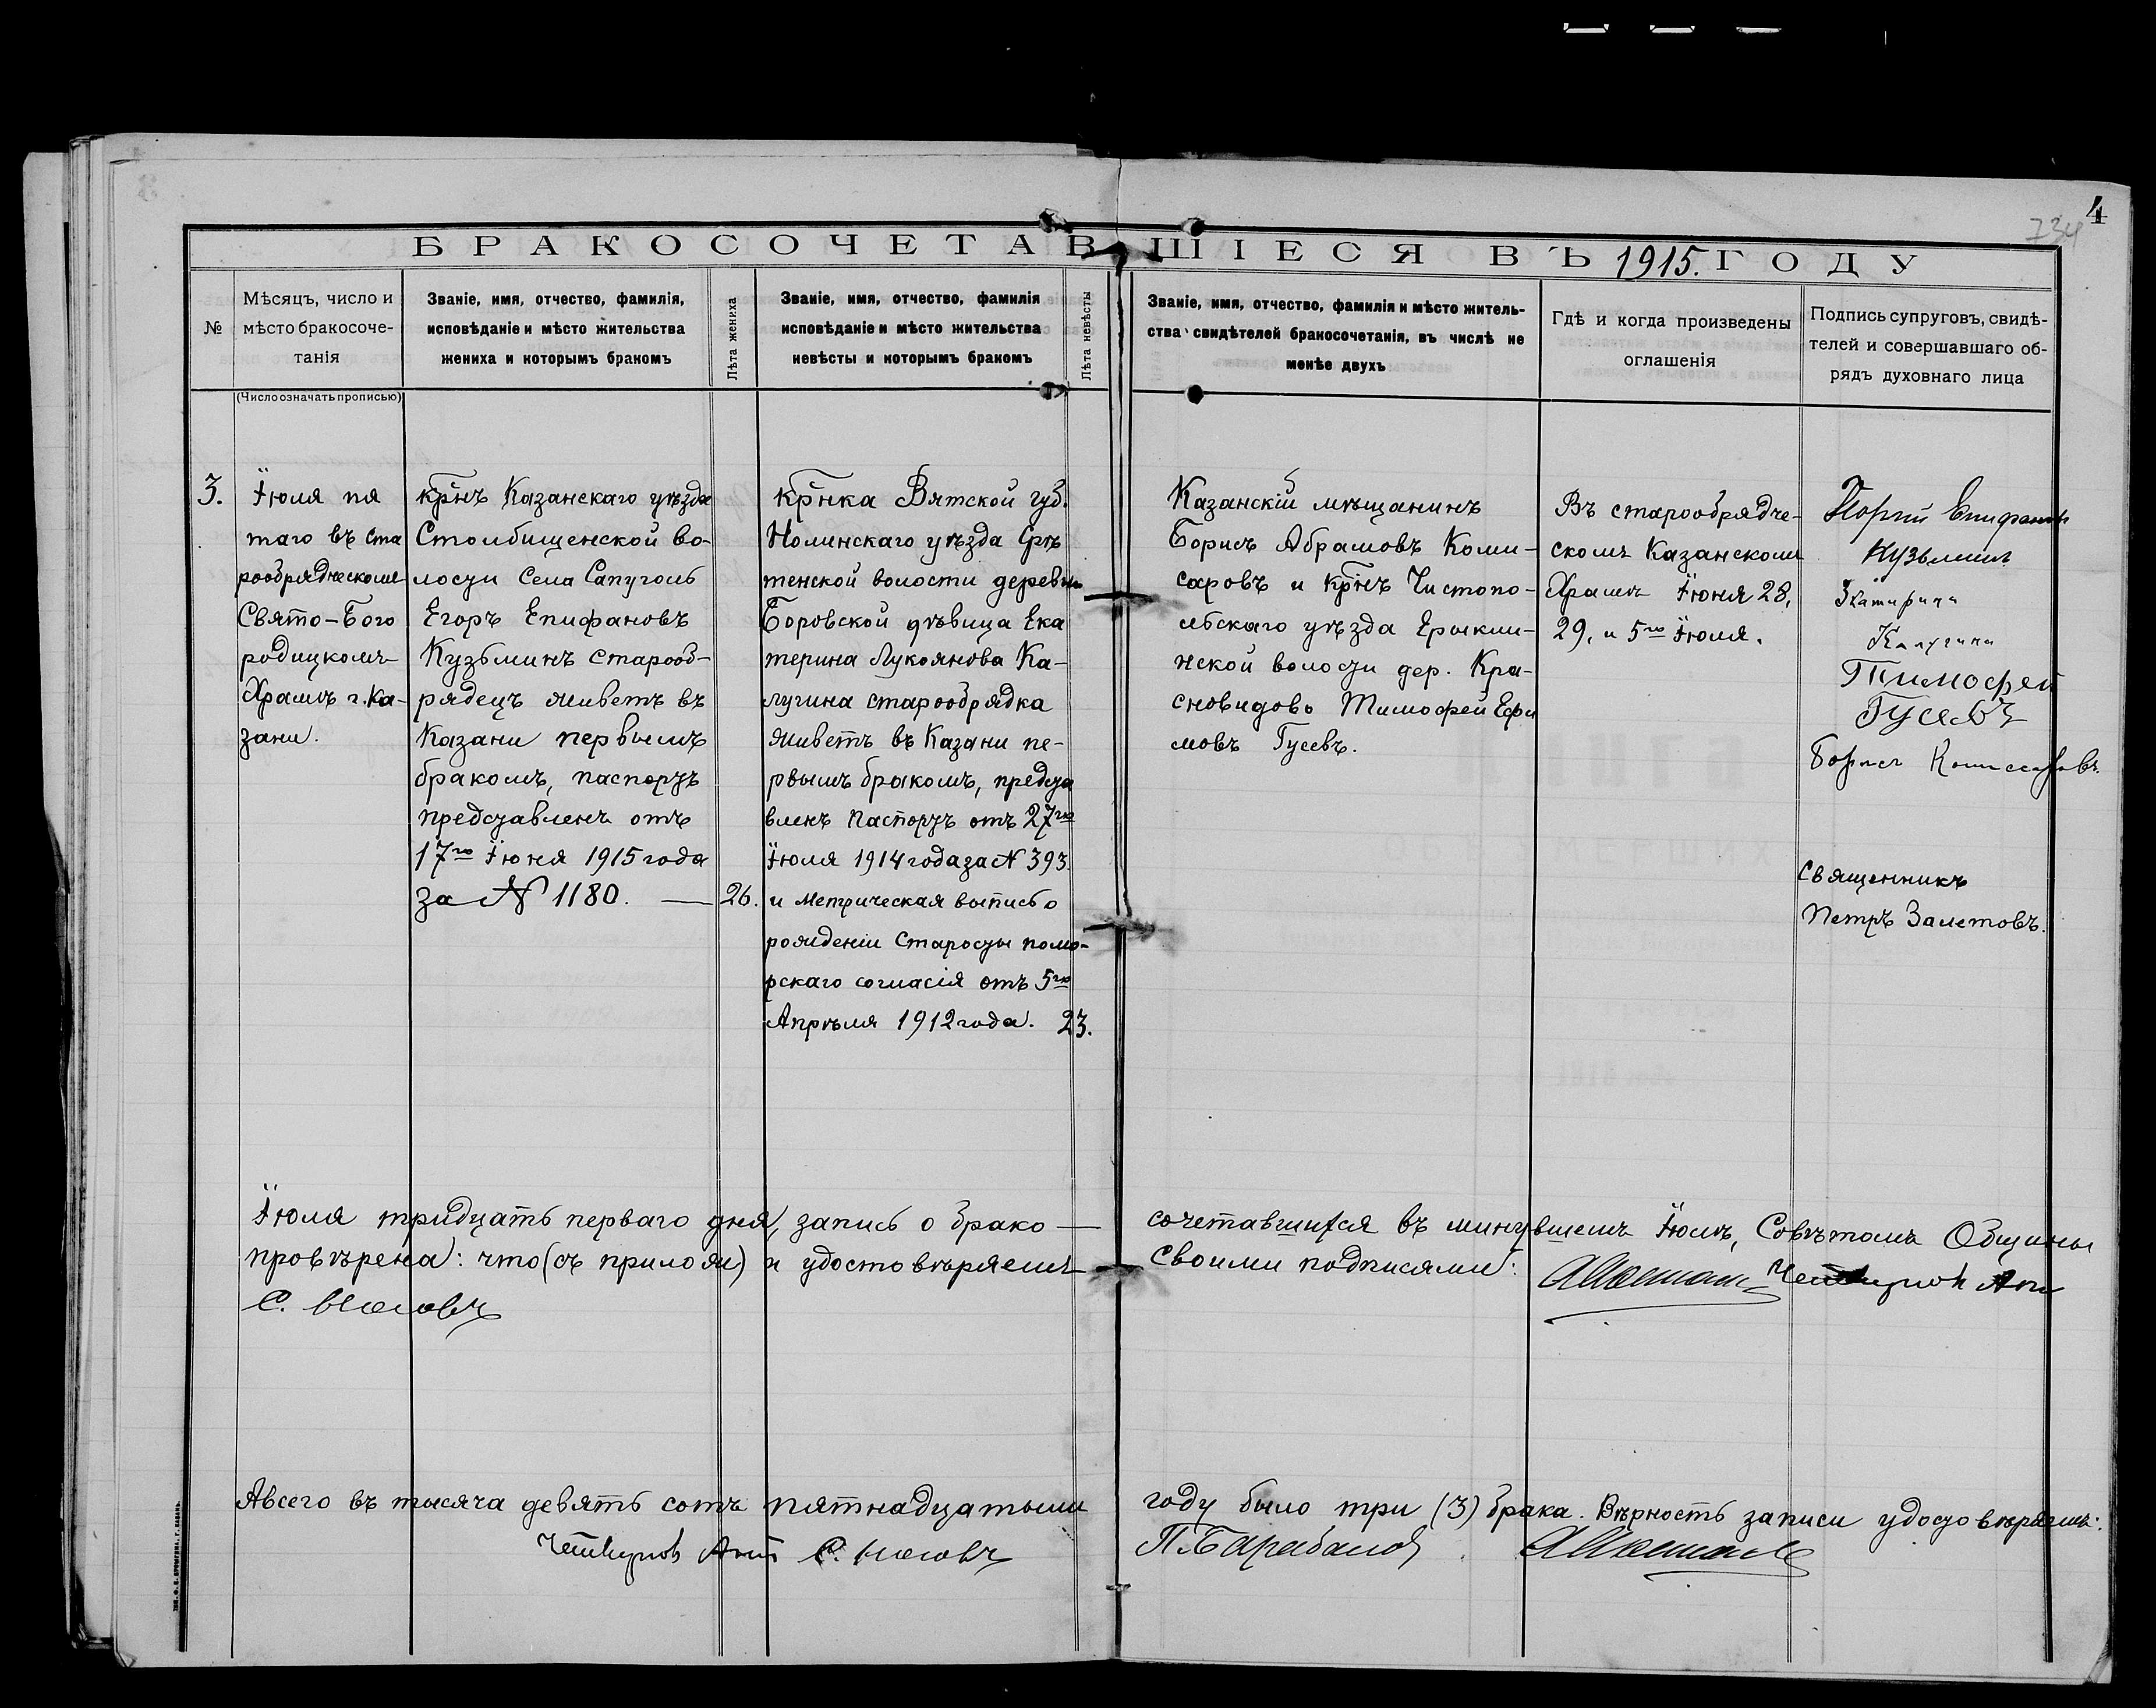 4
734
БРАКОСОЧЕТАВШІЕСЯ ВЪ 1915. ГОДУ
№
Мѣсяцъ, число и
мѣсто бракосоче-
танія
(Число означать прописью)
Званіе, имя, отчество, фамилія,
исповѣданіе и мѣсто жительства
жениха и которымъ бракомъ
Лѣта жениха
Званіе, имя, отчество, фамилія
исповѣданіе и мѣсто жительства
невѣсты и которымъ бракомъ
Лѣта невѣсты
Званіе, имя, отчество, фамилія и мѣсто житель-
ства свидѣтелей бракосочетанія, въ числѣ не
менѣе двухъ
Гдѣ и когда произведены
оглашенія
Подпись супруговъ, свидѣ-
телей и совершавшаго об-
рядъ духовнаго лица
3.
Їюля пя
таго въ ста
рообрядческомъ
Свято-Бого
родицкомъ
Храмѣ г. Ка-
зани.
крнъ Казанскаго уѣзда
Столбищенской во-
лости Села Сапуголь
Егоръ Епифановъ
Кузьминъ старооб-
рядецъ живетъ въ
Казани первымъ
бракомъ, паспортъ
представленъ отъ
17го Їюня 1915 года
за № 1180. —
26.
крнка Вятской губ.
Нолинскаго уѣзда Срѣ
тенской волости деревни
Боровской дѣвица Ека
терина Лукоянова Ка-
лугина старообрядка
живетъ въ Казани пе-
рвымъ бракомъ, предста
вленъ паспортъ отъ 27го
Їюля 1914 года за № 393.
и Метрическая выпись о
рожденіи Старосты помо-
рскаго согласія отъ 5го
Апрѣля 1912 года.
23.
Казанскій мѣщанинъ
Борисъ Абрамовъ Коми-
саровъ и крнъ Чистопо-
льскаго уѣзда Ерыкли-
нской волости дер. Кра-
сновидово Тимофей Ефи
мовъ Гусевъ.
Въ старообрядче-
скомъ Казанскомъ
Храмѣ Їюня 28,
29, и 5го Їюля.
Епифанов
Кузьминъ
Екатирина
Калугина
Тимофей
Гусевъ
Борисъ Комиссаровъ.
Священникъ
Петръ Залетовъ.
Їюля тридцать перваго дня, запись о брако — сочетавшихся въ минувшемъ Їюлѣ, Совѣтомъ Общины
провѣрена: что (съ прилож) и удостовѣряемъ своими подписями:
С. Носовъ
А всего въ тысяча девять сотъ пятнадцатымъ году было три (3) брака. Вѣрность записи удостовѣряемъ:
С. Носовъ П. Барабанов